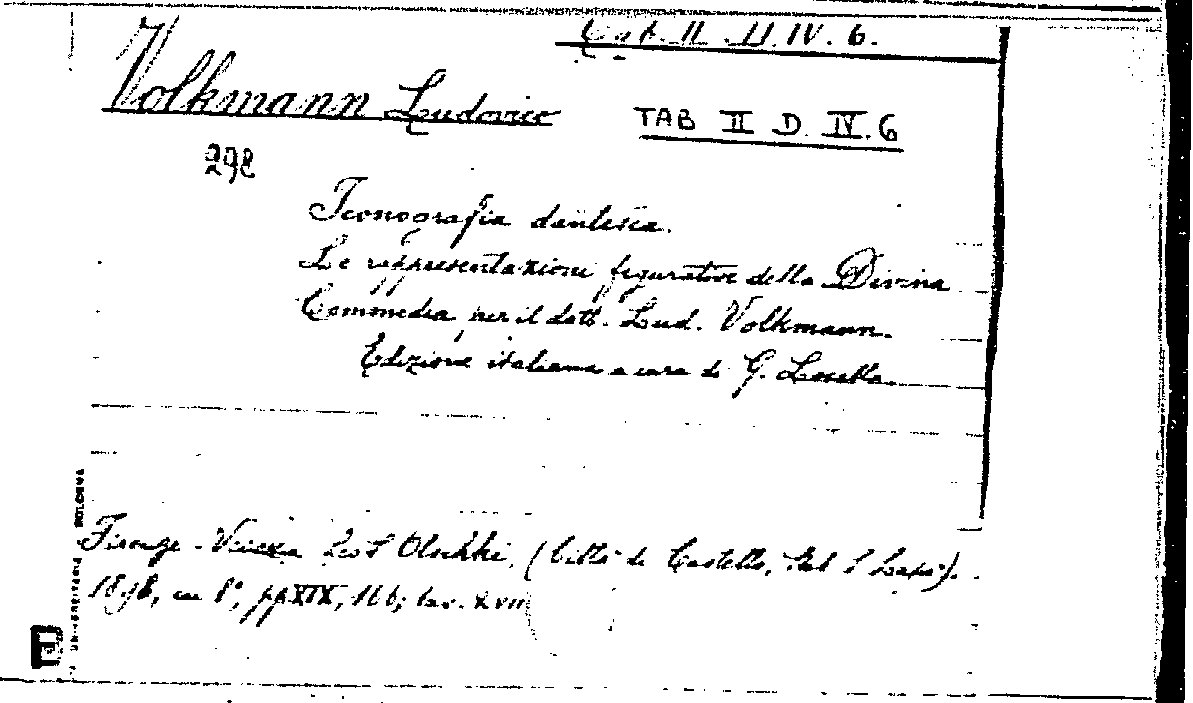 Tab. II. D. IV. 6.
Volkmann Ludovico
TAB II D. IV. 6
298
Iconografia dantesca.
Le rappresentazioni figurative della Divina
Commedia, per il dott. Lud. Volkmann.
Edizione italiana a cura di G. Locella.
Firenze-Venezia Leo S. Olschki, (Città di Castello, tab. S. Lapi).
1898, in 8°, pp XIX, 166; tav. XVII
UNIVERSITARIA BOLOGNA